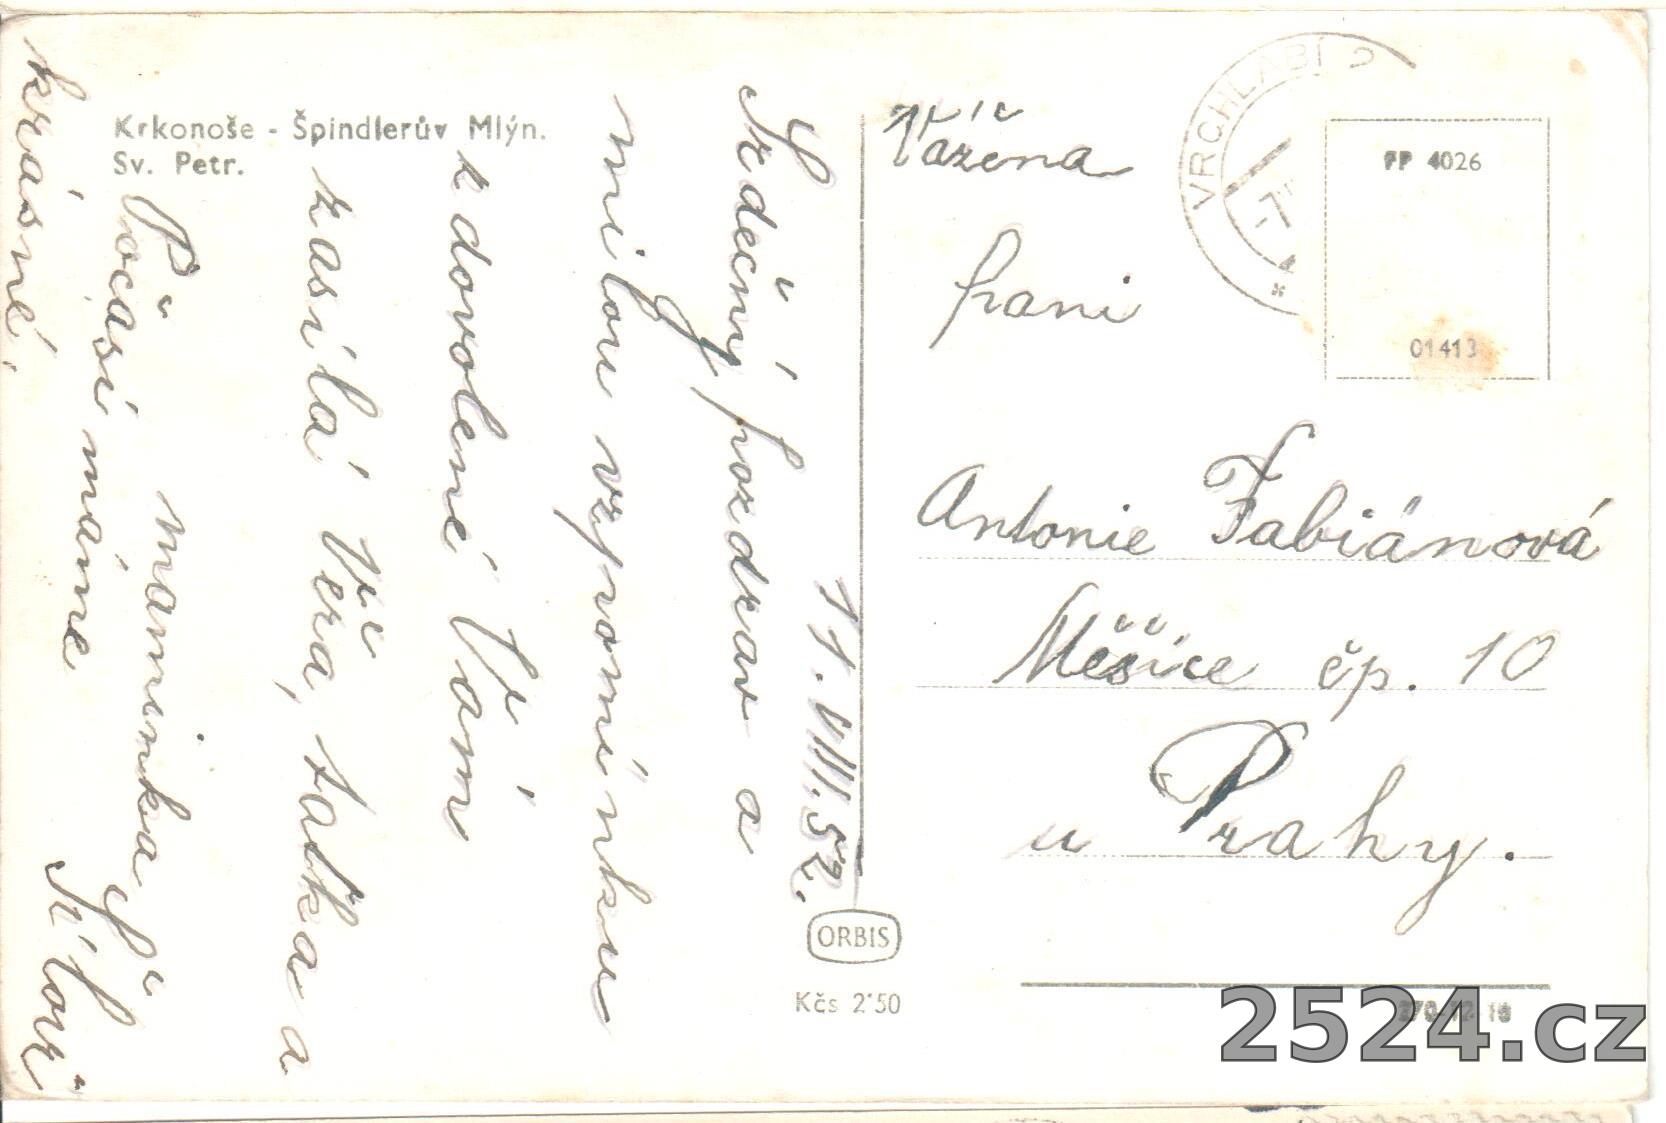 Krkonoše - Špindlerův Mlýn.
Sv. Petr.
11.VIII.52.
Srdečný pozdrav a
milou vzpomínku
z dovolené Vám
zasílá Věra, taťka a
maminka
Počasí máme
krásné.
Vážená
paní
Antonie Fabiánová
Měšice čp. 10
u Prahy.
VRCHLABÍ 2
-7
FP 4026
01413
ORBIS
Kčs 2˙50
2524.cz